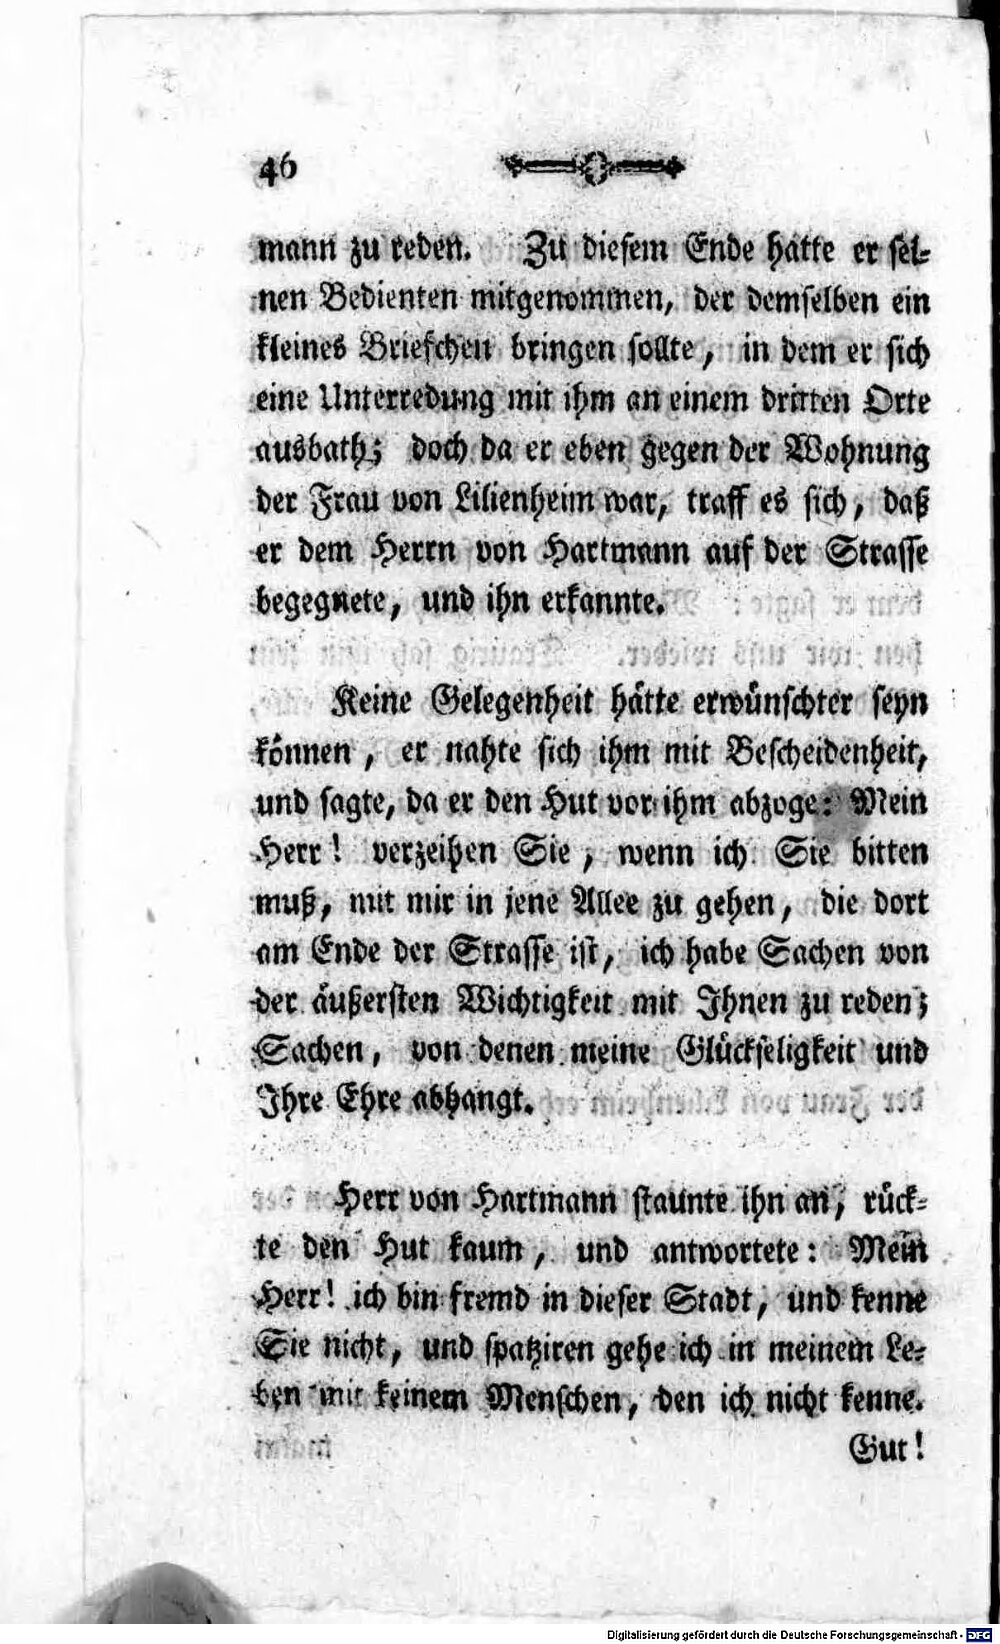 46
mann zu reden. Zu diesem Ende hatte er sei-
nen Bedienten mitgenommen, der demselben ein
kleines Briefchen bringen sollte, in dem er sich
eine Unterredung mit ihm an einem dritten Orte
ausbath; doch da er eben gegen der Wohnung
der Frau von Lilienheim war, traff es sich, daß
er dem Herrn von Hartmann auf der Strasse
begegnete, und ihn erkannte.
Keine Gelegenheit hätte erwünschter seyn
können, er nahte sich ihm mit Bescheidenheit,
und sagte, da er den Hut vor ihm abzoge: Mein
Herr! verzeihen Sie, wenn ich Sie bitten
muß, mit mir in jene Allee zu gehen, die dort
am Ende der Strasse ist, ich habe Sachen von
der äußersten Wichtigkeit mit Ihnen zu reden;
Sachen, von denen meine Glückseligkeit und
Ihre Ehre abhangt.
Herr von Hartmann staunte ihn an, rück-
te den Hut kaum, und antwortete: Mein
Herr! ich bin fremd in dieser Stadt, und kenne
Sie nicht, und spatziren gehe ich in meinem Le-
ben mit keinem Menschen, den ich nicht kenne.
Gut!
Digitalisierung gefördert durch die Deutsche Forschungsgemeinschaft - DFG